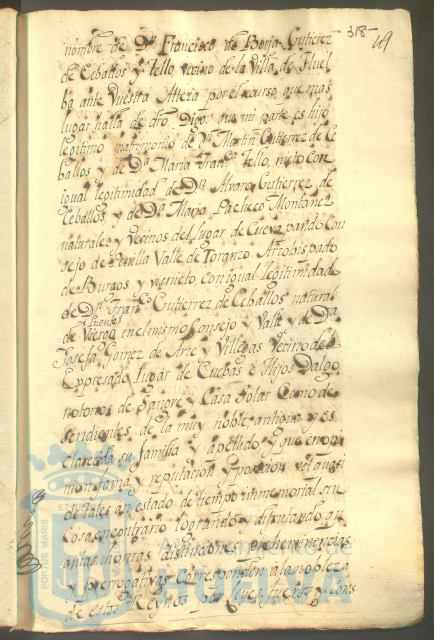 318
49
nombre de Dn. Francisco de Borja Gutierez
de Ceballos y Tello, vecino de la Villa de Huel
ba ante Vuestra Alteza por el recurso que mas
lugar halla de dro. Digo: que mi parte es hijo
legitimo matrimonio de Dn. Martin Gutierrez de Ce
ballos y de Da. Maria Franca. Tello, nieto con
igual legitimidad de Dn. Alvaro Gutierrez de
Ceballos, y de Da. Maria Pacheco Montañez
naturales y Vecinos del lugar de Cueva pando Con
sejo de Penilla Valle de Toranzo Arzobispado
de Burgos y visnieto con igual legitimidad
de Dn. Franco. Gutierrez de Ceballos natural
de Puente Viergo en el mismo Consejo y Valle y de Da.
Josefa Gomez de Arze y Villegas Vecino del
Expresado Lugar de Cuebas e Hijos Dalgo
notorios de Sangre y Casa Solar Como de
sendientes de la muy noble antigua y es
clarecida su familia y apellido y que en
y reputacion y posesion vel quasi
de tales an estado de tiempo inmemorial sin
Cosa en contrario logrando y disfrutando qu
antas honras distinciones preheminencias
y prerrogativas Corresponden a la nobleza
de estos Reynos por leyes fueros y cons
POR TUS MAROS
HUELVA